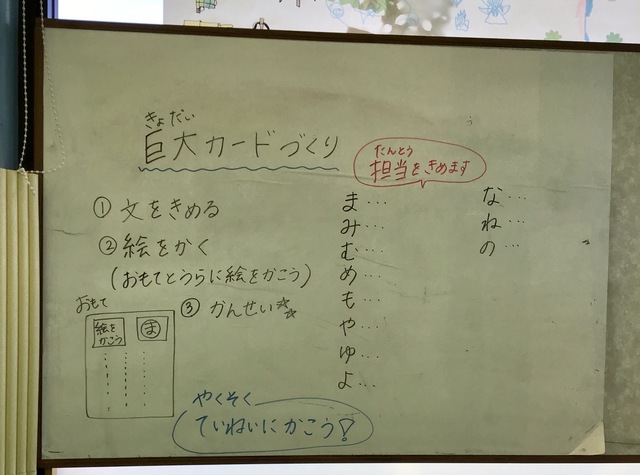 きょだい
巨大カードづくり
① 文をきめる
② 絵をかく
(おもてとうらに絵をかこう)
③ かんせい☆☆
おもて
絵を
かこう
ま
たんとう
担当をきめます
ま…
み…
む…
め…
も…
や…
ゆ…
よ…
な…
ね…
の…
やくそく
ていねいにかこう!